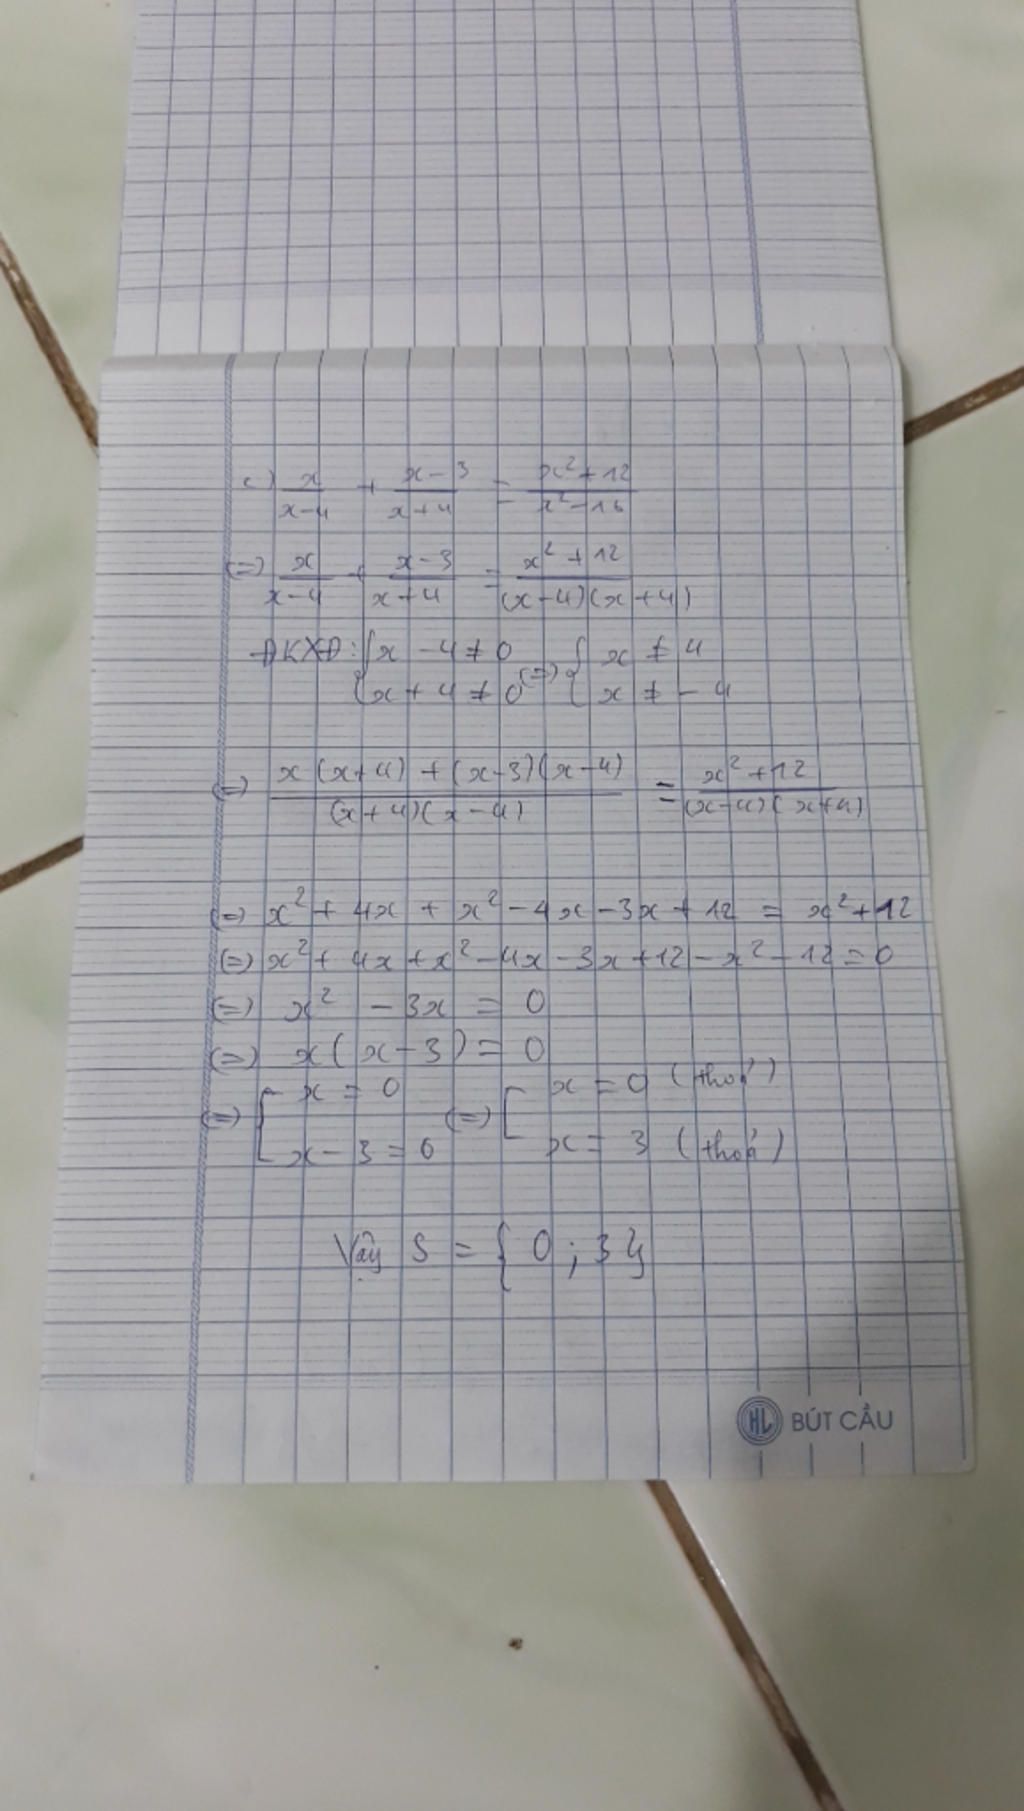 c) x/(x-4) + (x-3)/(x+4) = (x²+12)/(x²-16)
(=) x/(x-4) + (x-3)/(x+4) = (x²+12)/((x-4)(x+4))
ĐKXĐ: { x - 4 ≠ 0 (=) { x ≠ 4
{ x + 4 ≠ 0 { x ≠ - 4
(=) (x(x+4) + (x-3)(x-4))/((x+4)(x-4)) = (x²+12)/((x-4)(x+4))
(=) x² + 4x + x² - 4x - 3x + 12 = x² + 12
(=) x² + 4x + x² - 4x - 3x + 12 - x² - 12 = 0
(=) x² - 3x = 0
(=) x(x-3) = 0
(=) [ x = 0 (=) [ x = 0 (thoả)
[ x - 3 = 0 [ x = 3 (thoả)
Vậy S = { 0 ; 3 }
HL BÚT CẦU